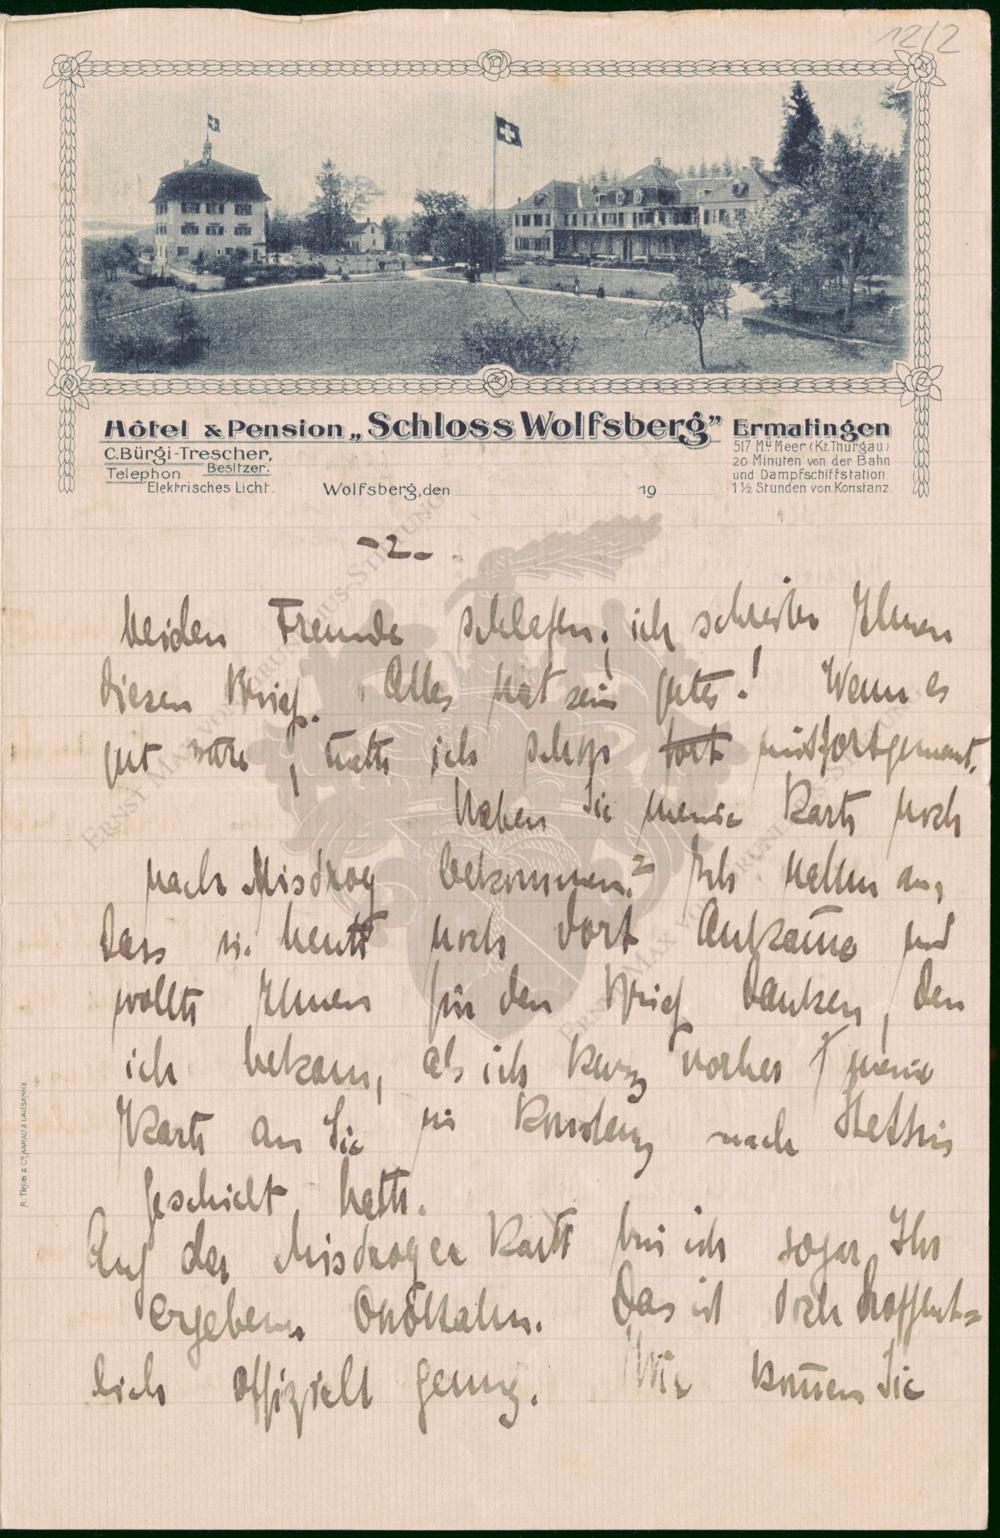 12/2
Hôtel & Pension „Schloss Wolfsberg” Ermatingen
C. Bürgi-Trescher,
Besitzer.
Telephon
Elektrisches Licht.
517 M ü Meer (Kt. Thurgau)
20 Minuten von der Bahn
und Dampfschiffstation
1½ Stunden von Konstanz.
Wolfsberg, den 19
-2-
beiden Freunde schlafen, ich schreibe Ihnen
diesen Brief. Alles hat sein gutes! Wenn es
gut wäre, hätte ich schon fort
Haben Sie meine Karte noch
nach Misdroy bekommen? Ich nahm an,
dass sie heute noch dort ankäme und
wollte Ihnen für den Brief danken, den
ich bekam, als ich kurz vorher meine
Karte an Sie in Konstanz nach Stettin
geschickt hatte.
Auf der Misdroyer Karte bin ich sogar Ihr
ergebener Das ist doch hoffent-
lich offiziell genug. Wie können Sie
A. Trüb & Cie, Aarau & Lausanne.
Ernst Max von Grunelius-Stiftung
Ernst Max von Grunelius-Stiftung